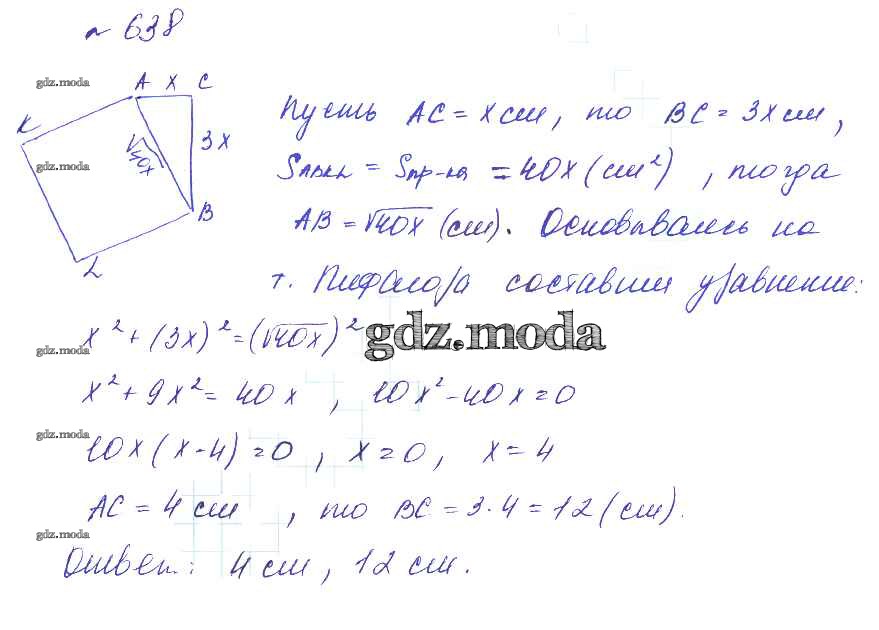 № 638
gdz.moda
A x C
K
3x
√40x
gdz.moda
B
L
Пусть AC = x см, то BC = 3x см,
SABKL = Sпр-ка = 40x (см²), тогда
AB = √40x (см). Основываясь на
т. Пифагора составим уравнение:
x² + (3x)² = (√40x)²
gdz.moda
gdz.moda
x² + 9x² = 40x, 10x² - 40x = 0
gdz.moda
10x(x - 4) = 0, x = 0, x = 4
AC = 4 см, то BC = 3·4 = 12 (см).
gdz.moda
Ответ: 4 см, 12 см.